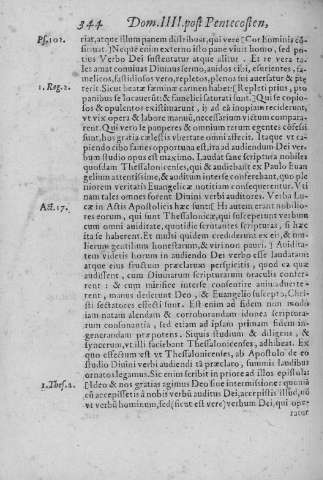 344 Dom. IIII. post Pentecosten,
Ps. 101. riat, atque illum panem distribuat, qui vere [Cor hominis cõ-
firmat.] Neque enim externo isto pane viuit homo, sed po-
tius Verbo Dei sustentatur atque alitur. Et re vera ta-
les amat conuiuas Diuinus sermo, auidos cibi, esurientes, fa-
melicos, fastidiosos vero, repletos, plenos sui auersatur & pre-
1. Reg. 2. terit. Sicut beatæ fæminæ carmen habet: [Repleti prius, pro
panibus se locauerũt: & famelici saturati sunt.] Qui se copio-
sos & opulentos existimarunt, ij ad eã inopiam reciderunt,
vt vix opera & labore manuũ, necessarium victum compara-
rent. Qui vero se pauperes & omnium rerum egentes cõfessi
sunt, hos gratia cælestis vbertate omni affecit. Itaque vt ca-
piendo cibo fames opportuna est, ita ad audiendum Dei ver-
bum studio opus est maximo. Laudat sane scriptura nobiles
quosdam Thessalonicenses, qui & audiebant ex Paulo Euan
gelium attentissime, & auditum interse conferebant, quo ple
niorem veritatis Euangelicæ notitiam consequerentur. Vti
nam tales omnes forent Diuini verbi auditores. Verba Lu-
Act. 17. cæ in Actis Apostolicis hæc sunt: [Hi autem erant nobilio-
res eorum, qui sunt Thessalonicæ, qui susceperunt verbum
cum omni auiditate, quotidie scrutantes scripturas, si hæc
ita se haberent. Et multi quidem crediderunt ex eis, & mu-
lierum gentilium honestarum, & viri non pauci.] Auidita-
tem videtis horum in audiendo Dei verbo esse laudatam:
atque eius fructum præclarum perspicitis, quod ea quæ
audissent, cum Diuinarum scripturarum oraculis confer-
rent: & cum mirifice interse consentire animaduerte-
rent, manus dederunt Deo, & Euangelio suscepto, Chri-
sti sectatores effecti sunt. Est enim ad fidem non modo
iam natam alendam & corroborandam idonea scriptura-
rum consonantia, sed etiam ad ipsam primum fidem in-
generandam præpotens. Siquis studium & diligens, &
syncerum, vt illi faciebant Thessalonicenses, adhibeat. Ex
quo effectum est vt Thessalonicenses, ab Apostolo de eo
studio Diuini verbi audiendi tã præclaro, summis laudibus
ornatos legamus. Sic enim scribit in priore ad illos epistola:
1. Thes. 2. [Ideo & nos gratias agimus Deo sine intermissione: quoniã
cũ accepissetis à nobis verbũ auditus Dei, accepistis illud, nõ
vt verbũ hominum, sed (sicut est vere) verbum Dei, qui ope-
ratur